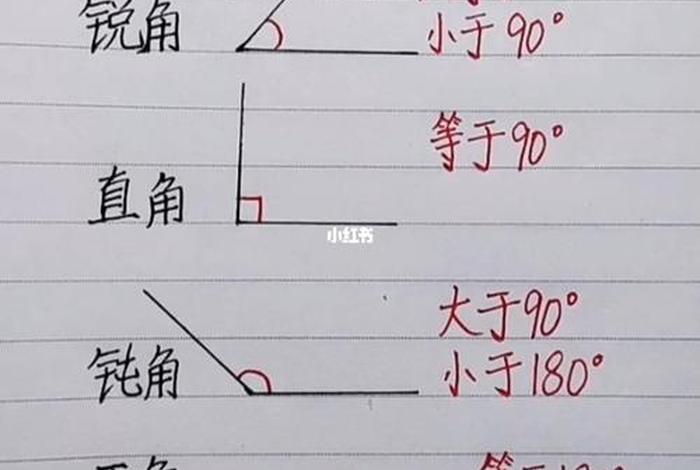 锐角
小于90°
等于90°
直角
小红书
大于90°
钝角
小于180°